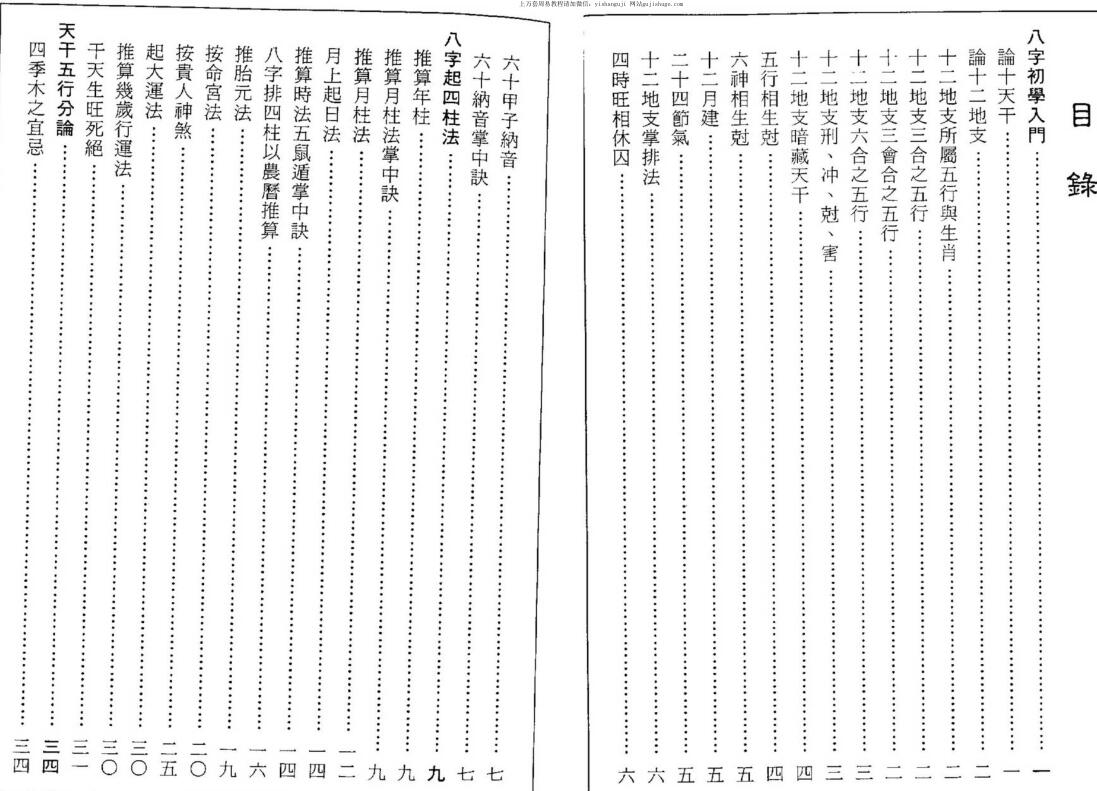 上万套周易教程请加微信：yishanguji 网站gujishuge.com
目錄
八字初學入門……一
論十天干……一
論十二地支……二
十二地支所屬五行與生肖……二
十二地支三合之五行……二
十二地支三會合之五行……二
十二地支六合之五行……三
十二地支刑、冲、尅、害……三
十二地支暗藏天干……四
五行相生尅……四
六神相生尅……五
十二月建……五
二十四節氣……五
十二地支掌排法……六
四時旺相休囚……六
六十甲子納音……七
六十納音掌中訣……七
八字起四柱法……九
推算年柱……九
推算月柱法掌中訣……九
推算月柱法……一二
月上起日法……一四
推算時法五鼠遁掌中訣……一四
八字排四柱以農曆推算……一六
推胎元法……一九
按命宮法……二〇
按貴人神煞……二五
起大運法……三〇
推算幾歲行運法……三〇
干天生旺死絕……三一
天干五行分論……三四
四季木之宜忌……三四